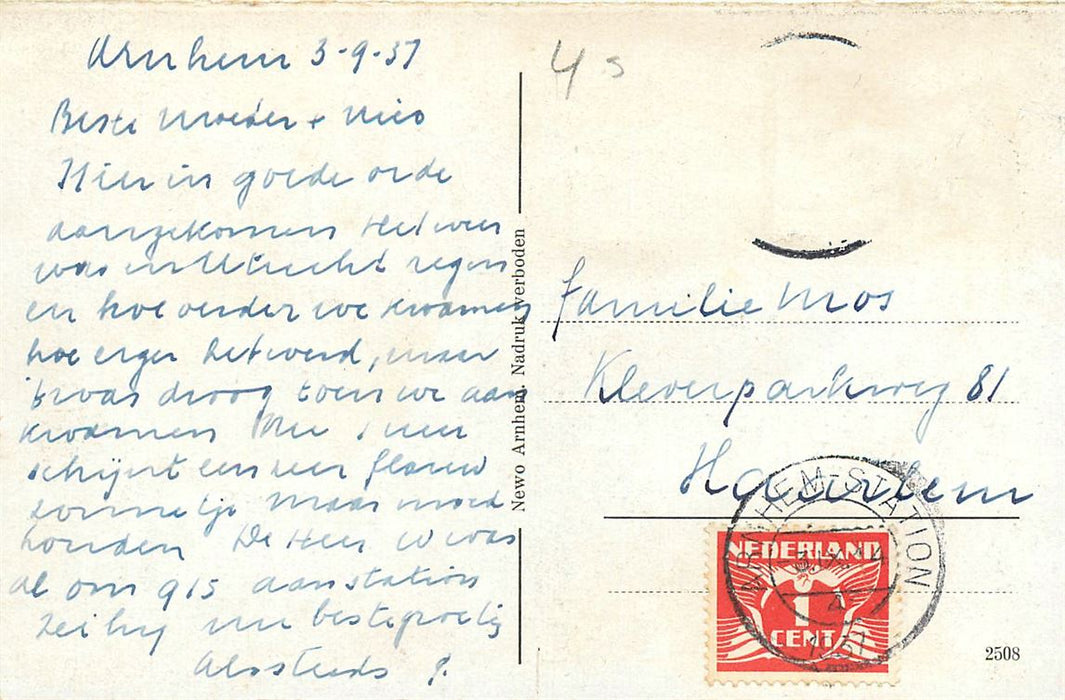 Arnhem 3-9-37
Beste Moeder + Nico
Hier in goede orde
aangekomen Het weer
was in Utrecht regen
en hoe verder we kwamen
hoe erger het werd, maar
't was droog toen we aan
kwamen Nu 1 uur
schijnt een zeer flauw
zonnetje Maar moed
houden De Heer W was
al om 915 aan station
zei hij nu beste groetjs
als steeds
4 s
Familie Mos
Kleverparkweg 81
Haarlem
Newo Arnhem. Nadruk verboden
ARNHEM-STATION
NEDERLAND
1
CENT
2508